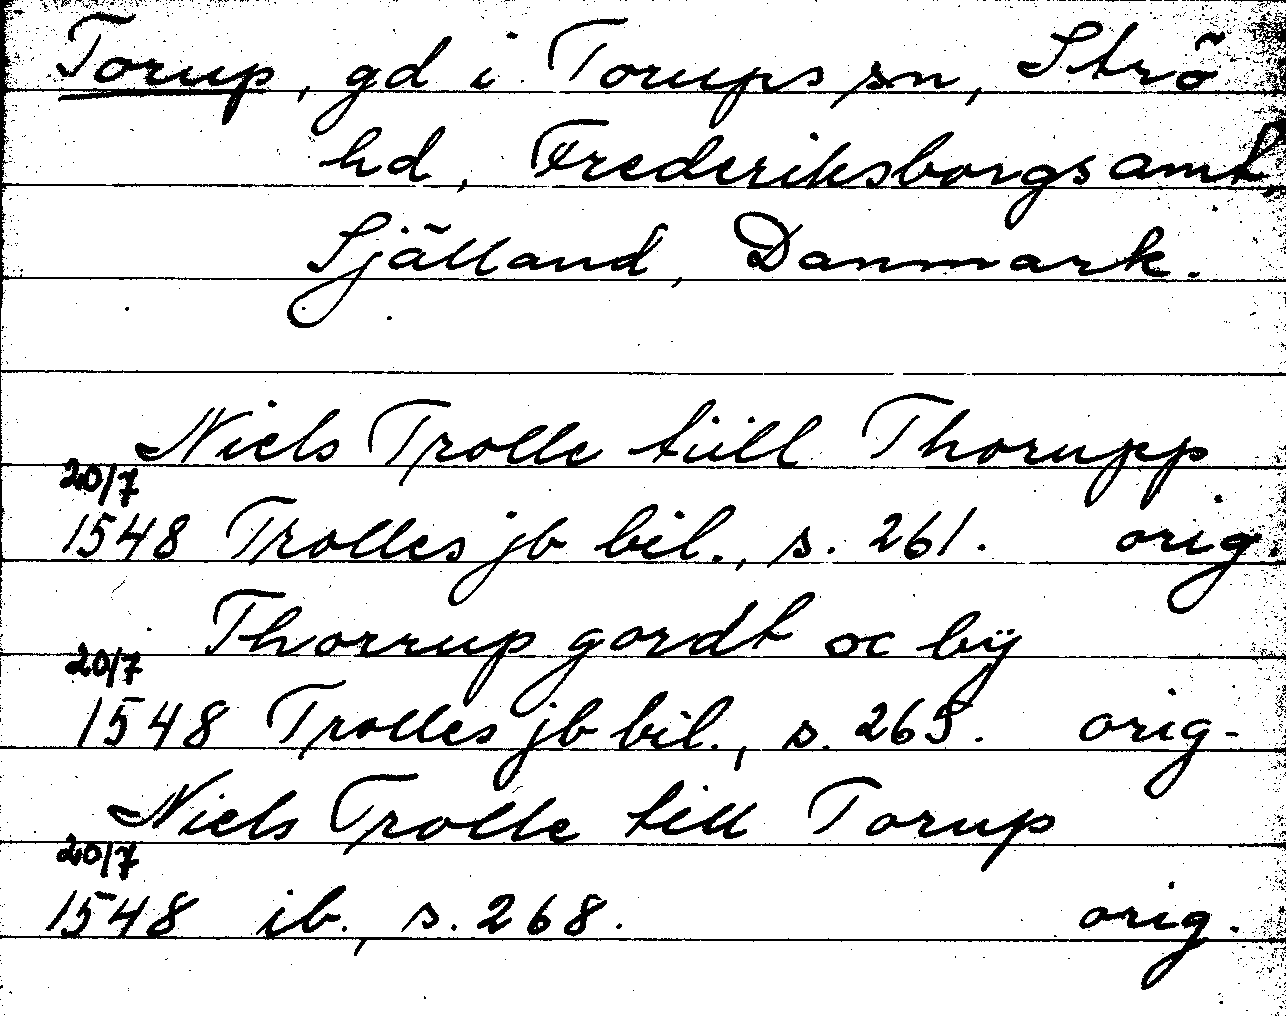 Torup, gd i Torups sn, Strö
hd, Frederiksborgs amt,
Själland, Danmark.
Niels Trolle tiill Thorupp
20/7
1548 Trolles jb bil., s. 261. orig.
Thorrup gordt oc bÿ
20/7
1548 Trolles jb bil., s. 265. orig.
Niels Trolle till Torup
20/7
1548 ib., s. 268. orig.